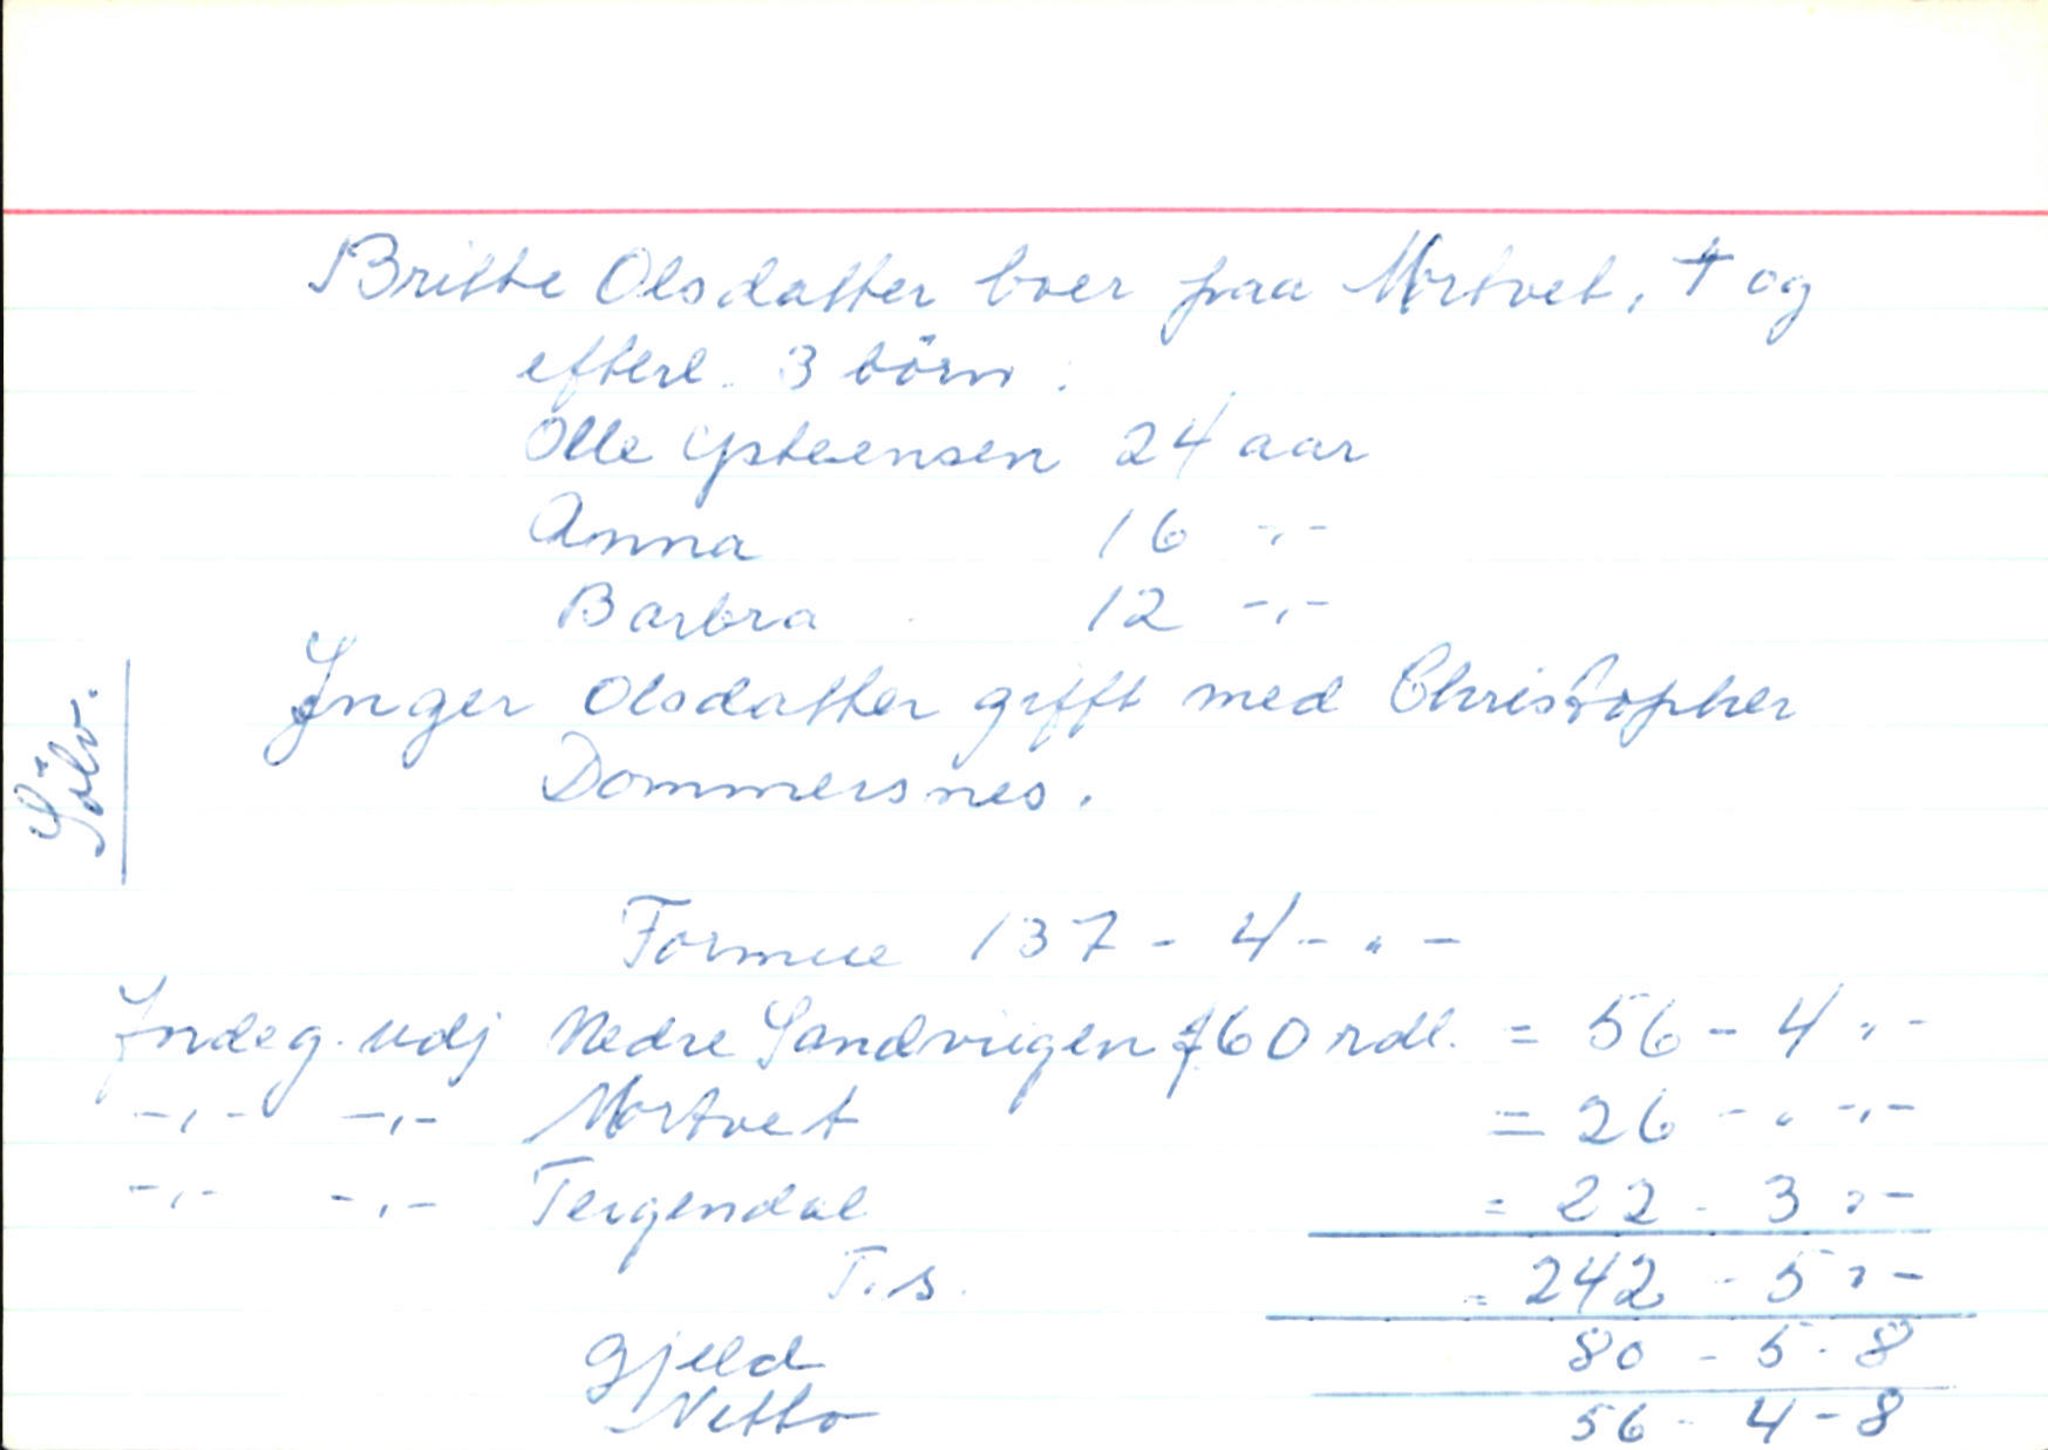 Britte Olsdatter boer paa Mortvet, † og
efterl. 3 börn:
Olle Ysteensen 24 aar
Anna 16 -"-
Barbra 12 -"-
Inger Olsdatter gifft med Christopher
Dommersnes.
Sölv.
Formue 137 - 4 - " -
Indeg. udj Nedre Sandviigen f 60 rdl. = 56 - 4 " -
-"- -"- Mortvet = 26 - " -"-
-"- -"- Tergendal = 22 - 3 " -
T.s. = 242 - 5 " -
Gjeld 80 - 5 - 8
Netto 56 - 4 - 8